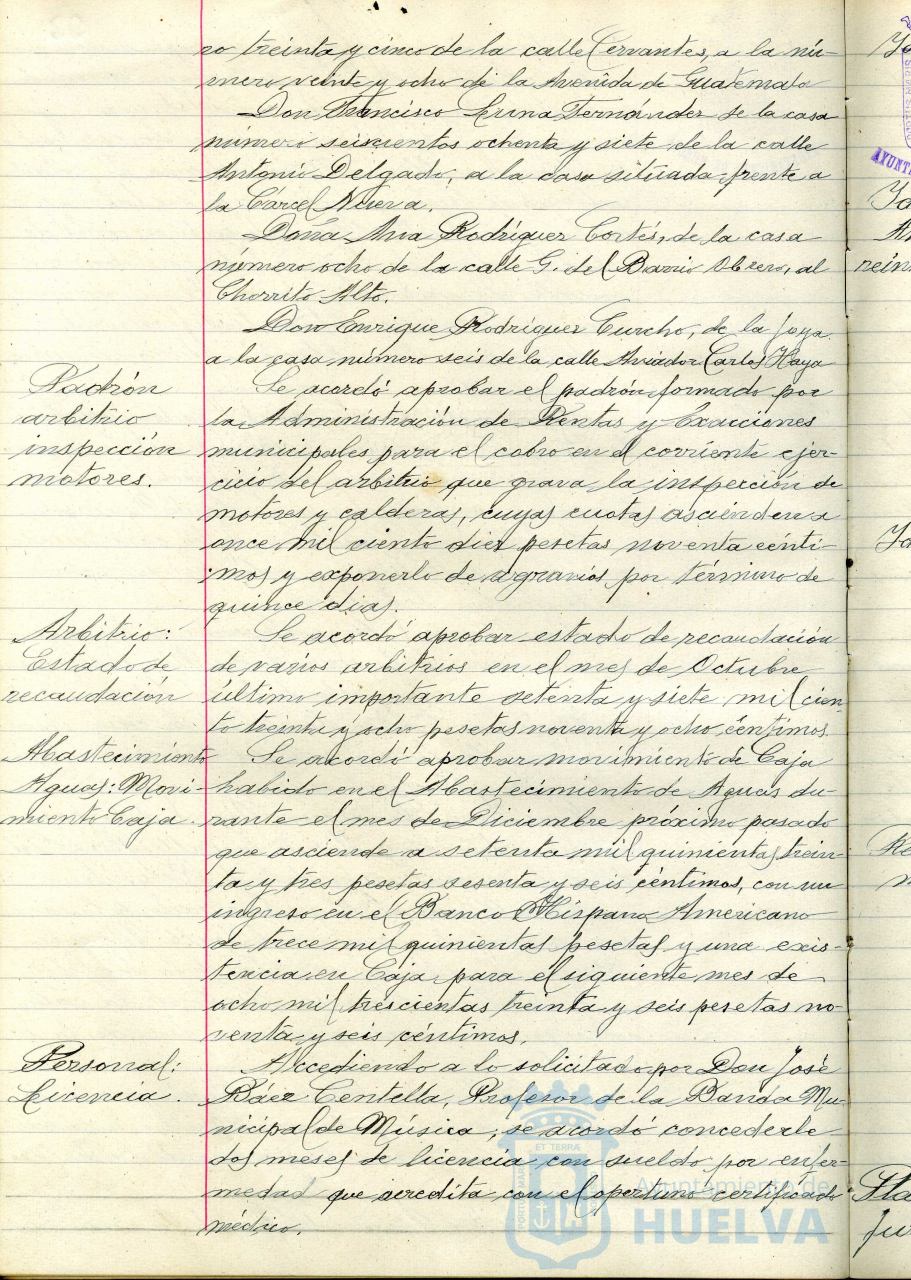 ro treinta y cinco de la calle Cervantes, a la nú-
mero veinte y ocho de la Avenida de Guatemala
Don Francisco Luna Fernández de la casa
número seiscientos ochenta y siete de la calle
Antonio Delgado, a la casa situada frente a
la Cárcel Nueva.
Doña Ana Rodríguez Cortés, de la casa
número ocho de la calle G. del Barrio Obrero, al
Chorrito Alto.
Don Enrique Rodríguez Curcho, de la Joya
a la casa número seis de la calle Aviador Carlos Haya
Padrón
arbitrio
inspección
motores.
Se acordó aprobar el padrón formado por
la Administración de Rentas y Exacciones
municipales para el cobro en el corriente ejer-
cicio del arbitrio que grava la inspección de
motores y calderas, cuyas cuotas ascienden a
once mil ciento diez pesetas noventa cénti-
mos y exponerlo de agravios por término de
quince dias.
Arbitrio:
Estado de
recaudación
Se acordó aprobar estado de recaudación
de varios arbitrios en el mes de Octubre
último importante setenta y siete mil cien-
to treinta y ocho pesetas noventa y ocho céntimos.
Abastecimiento
Aguas: Movi-
miento Caja.
Se acordó aprobar movimiento de Caja
habido en el Abastecimiento de Aguas du-
rante el mes de Diciembre próximo pasado
que asciende a setenta mil quinientas trein-
ta y tres pesetas sesenta y seis céntimos, con un
ingreso en el Banco Hispano Americano
de trece mil quinientas pesetas y una exis-
tencia en Caja para el siguiente mes de
ocho mil trescientas treinta y seis pesetas no-
venta y seis céntimos.
Personal:
Licencia.
Accediendo a lo solicitado por Don José
Báez Centella, Profesor de la Banda Mu-
nicipal de Música, se acordó concederle
dos meses de licencia con sueldo por enfer-
medad que acredita con el oportuno certificado
médico.
Ayuntamiento de
HUELVA